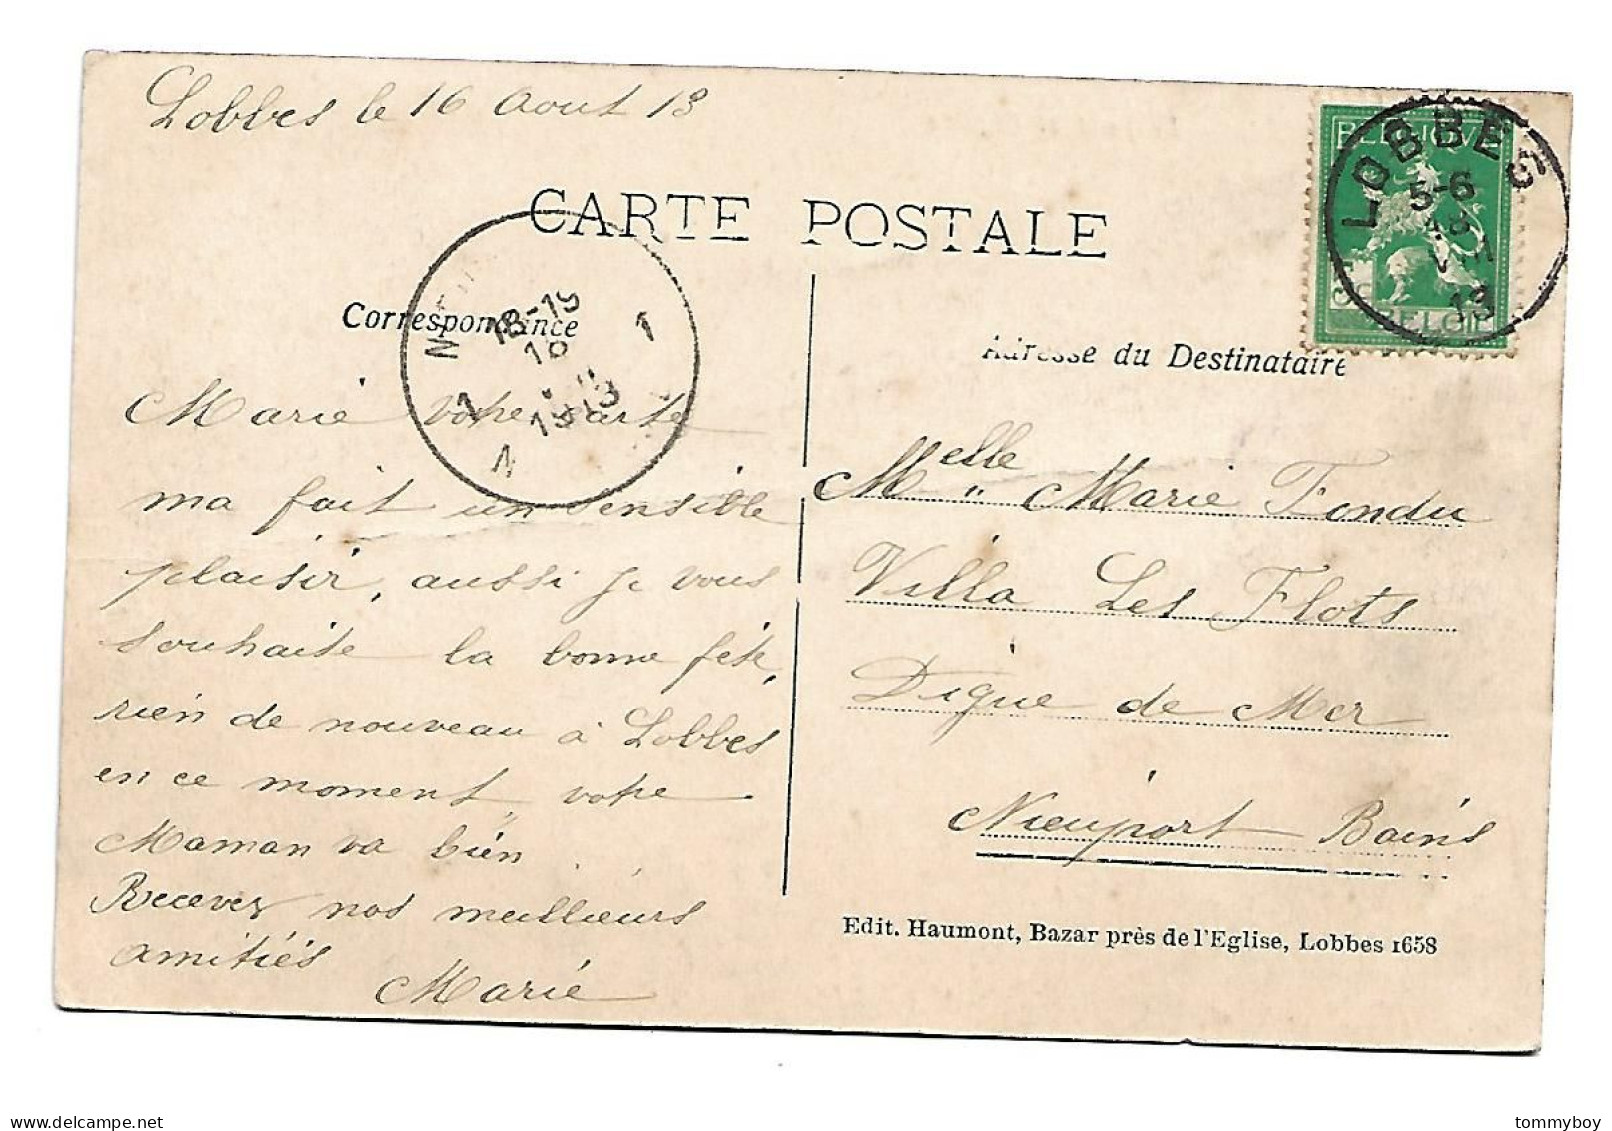 Lobbes le 16 Aout 13
CARTE POSTALE
Correspondance
Marie votre carte
ma fait un sensible
plaisir, aussi je vous
souhaite la bonne fête,
rien de nouveau à Lobbes
en ce moment, votre
Maman va bien.
Recevez nos meilleurs
amitiés
Marie
1 18-19 1
18
1913
N
BELGIQUE
BELGIË
LOBBES
5-6
VIII
13
Adresse du Destinataire
Melle Marie Fondu
Villa Les Flots
Digue de Mer
Nieuport Bains
Edit. Haumont, Bazar près de l'Eglise, Lobbes 1658
delcampe.net
tommyboy